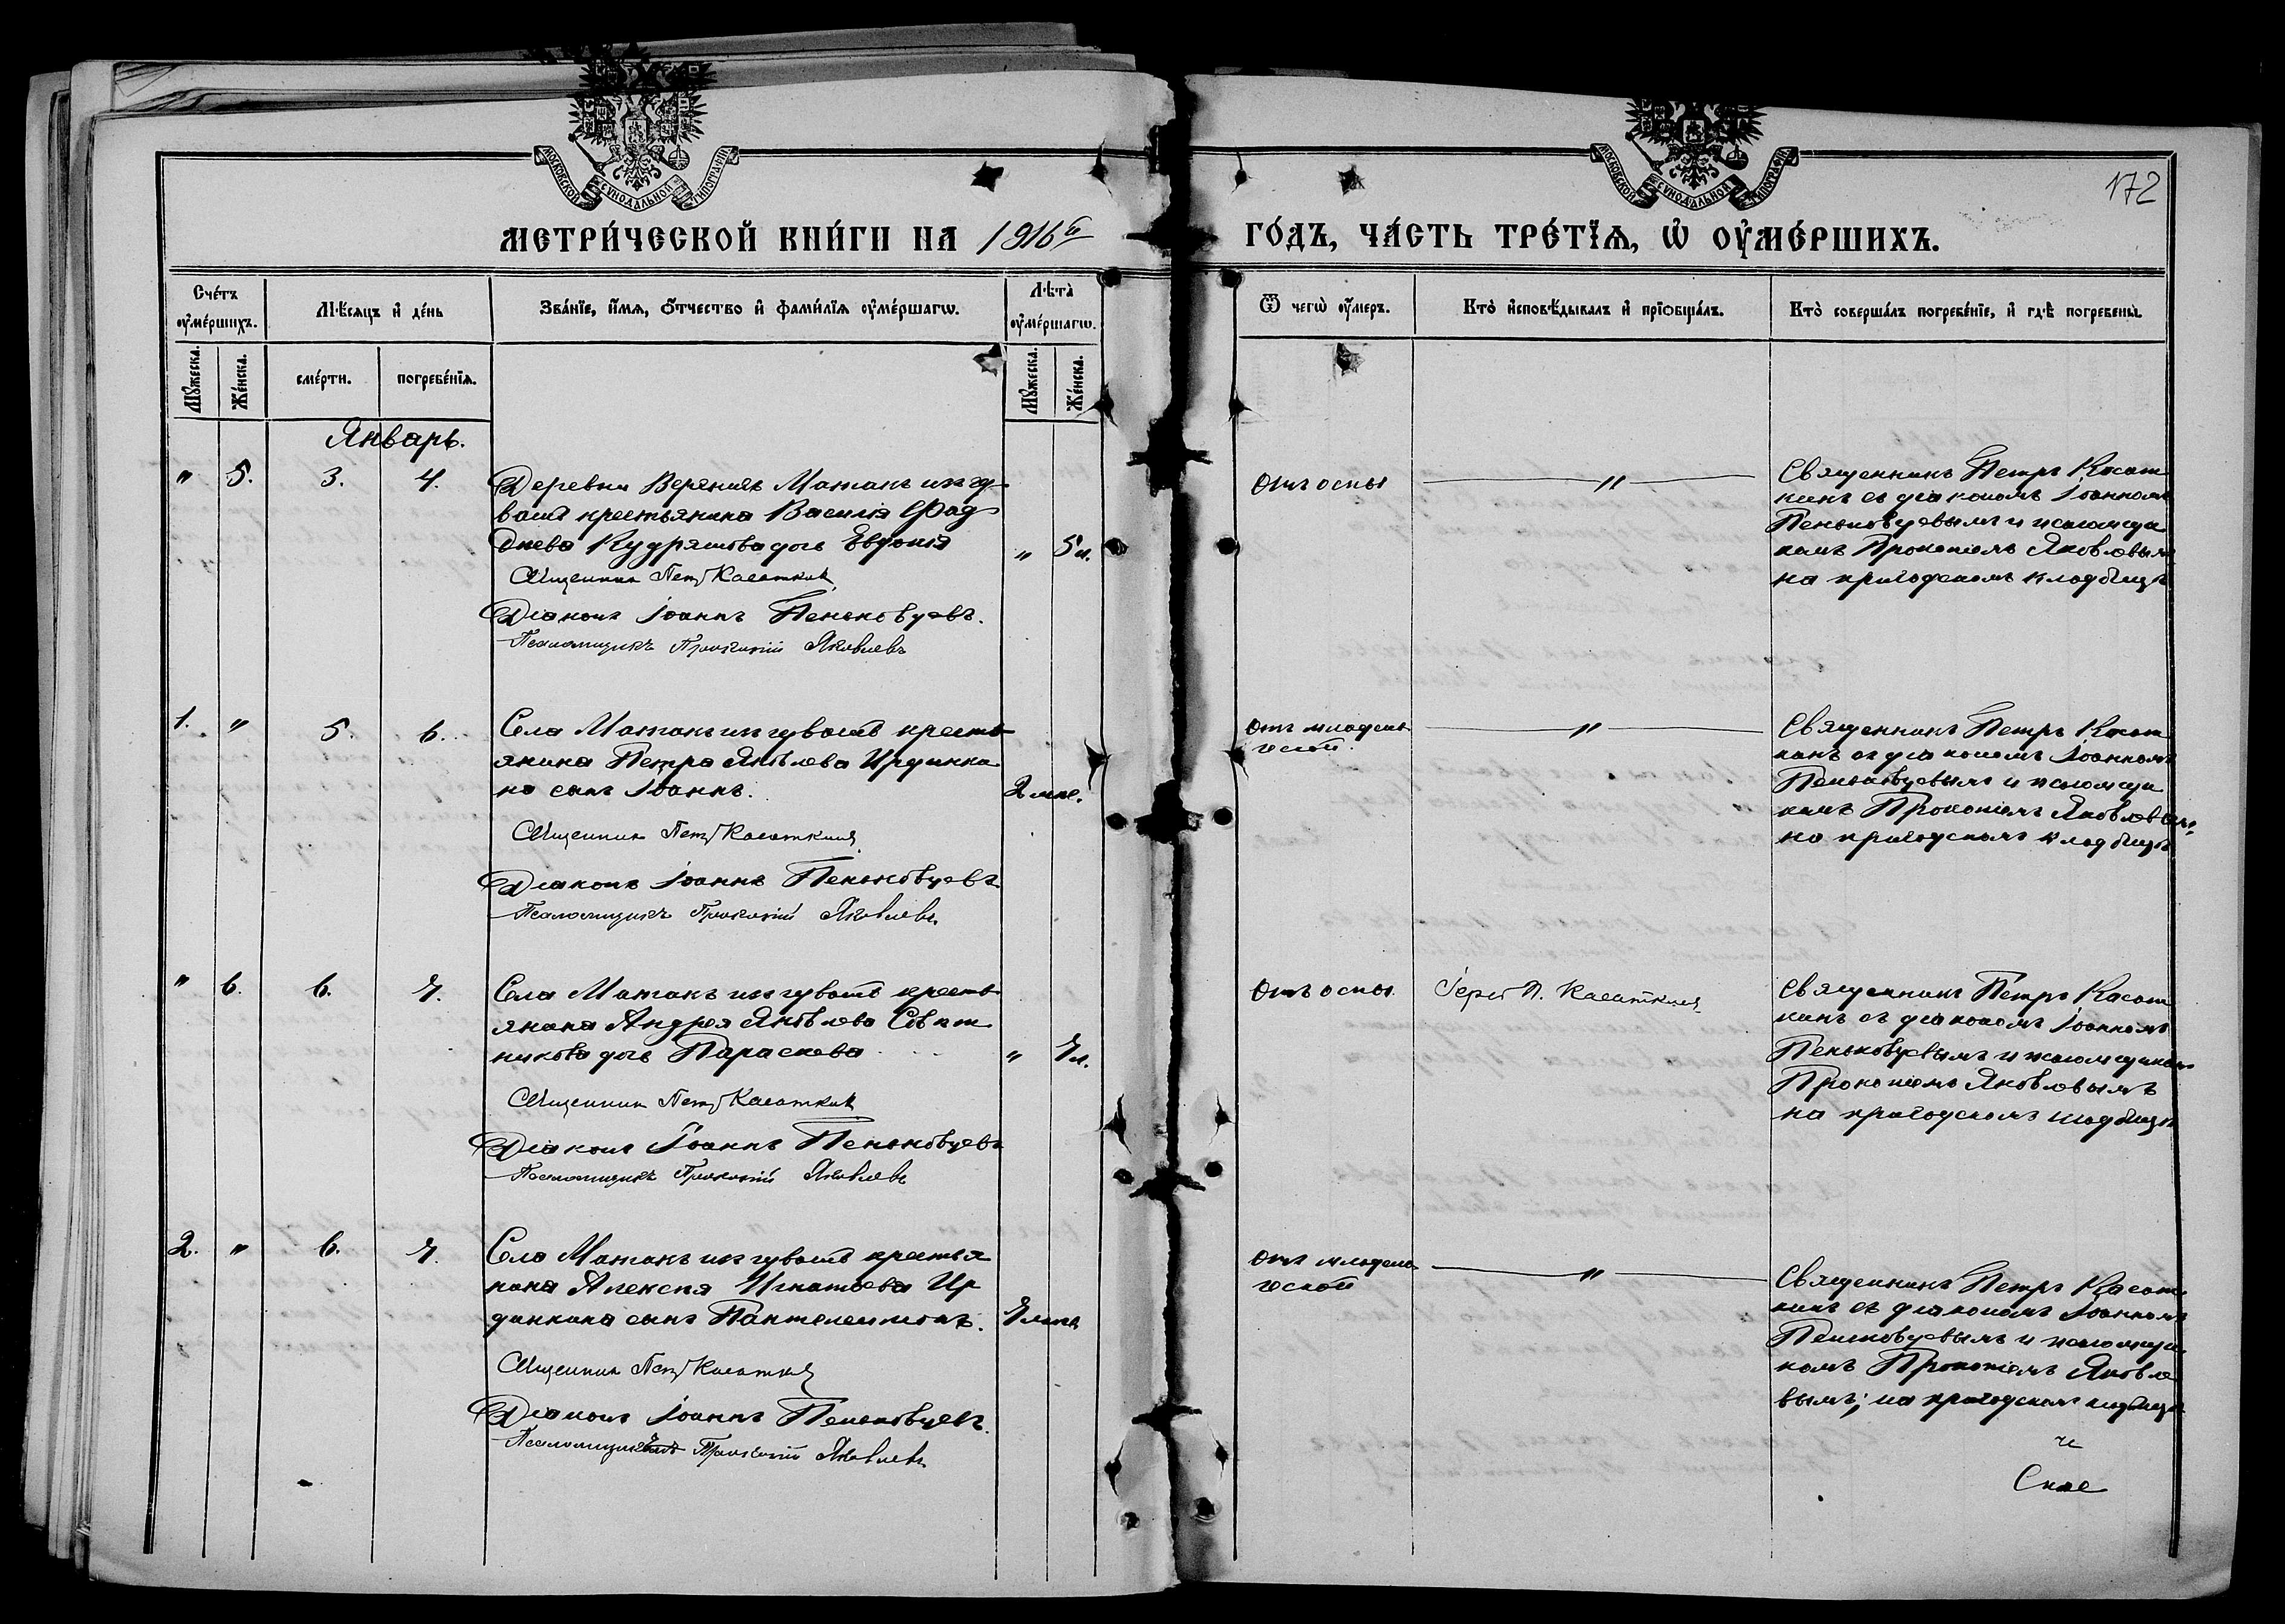 МОСКОВСКОЙ СѴНОДАЛЬНОЙ ТИПОГРАФІИ
МОСКОВСКОЙ СѴНОДАЛЬНОЙ ТИПОГРАФІИ
172
МЕТРИ́ЧЕСКОЙ КНИ́ГИ НА 1916й ГО́ДЪ, ЧА́СТЬ ТРЕ́ТЇѦ, Ѡ҆ ОУ҆МЕ́РШИХЪ.
Сче́тъ оу҆ме́ршихъ.
Мѣ́сяцъ и҆ де́нь
Зва́нїе, и҆́мѧ, ѻ҆́тчество и҆ фами́лїѧ оу҆ме́ршагѡ.
Лѣта̀ оу҆ме́ршагѡ.
Ѿ чегѡ̀ оу҆́меръ.
Кто̀ и҆сповѣ́дывалъ и҆ прїѻбща́лъ.
Кто̀ соверша́лъ погребе́нїе, и҆ гдѣ̀ погребены̀.
Мꙋ́жеска.
Же́нска.
сме́рти.
погребе́нїѧ.
Мꙋ́жеска.
Же́нска.
Январь.
" 5. 3. 4.
Деревни Верхнихъ Матакъ изъ чу
вашъ крестьянина Василія Фад
деева Кудряшова дочь Евдокія
" 5 л.
Священникъ Петръ Касаткинъ
Діаконъ Іоаннъ Пеньковцевъ.
Псаломщикъ Прокопій Яковлевъ
Отъ оспы
"
Священникъ Петръ Касат
кинъ съ діакономъ Іоанномъ
Пеньковцевымъ и псаломщи
комъ Прокопіемъ Яковлевым
на приходскомъ кладбищѣ
1. " 5. 6.
Села Матакъ изъ чувашъ кресть
янина Петра Яковлева Ирдинки
на сынъ Іоаннъ.
2 мѣс.
Священникъ Петръ Касаткинъ
Діаконъ Іоаннъ Пеньковцевъ
Псаломщикъ Прокопій Яковлевъ
Отъ младен
ческой.
"
Священникъ Петръ Касат
кинъ съ діакономъ Іоанномъ
Пеньковцевымъ и псаломщи
комъ Прокопіемъ Яковлевымъ
на приходскомъ кладбищѣ
" 6. 6. 7.
Села Матакъ изъ чувашъ кресть
янина Андрея Яковлева
дочь Параскева
" 7 л.
Священникъ Петръ Касаткинъ
Діаконъ Іоаннъ Пеньковцевъ
Псаломщикъ Прокопій Яковлевъ
Отъ оспы.
Іерей П. Касаткинъ
Священникъ Петръ Касат
кинъ съ діакономъ Іоанномъ
Пеньковцевымъ и псаломщикомъ
Прокопіемъ Яковлевымъ
на приходскомъ кладбищѣ
2. " 6. 7.
Села Матакъ изъ чувашъ крестья
нина Алексѣя Игнатьева Ир
динкина сынъ Пантелеимонъ.
Священникъ Петръ Касаткинъ
Діаконъ Іоаннъ Пеньковцевъ.
Псаломщикъ Прокопій Яковлевъ
Отъ младен
ческой
"
Священникъ Петръ Касат
кинъ съ діакономъ Іоанномъ
Пеньковцевымъ и псаломщи
комъ Прокопіемъ Яковле
вымъ; на приходскомъ кладбищѣ